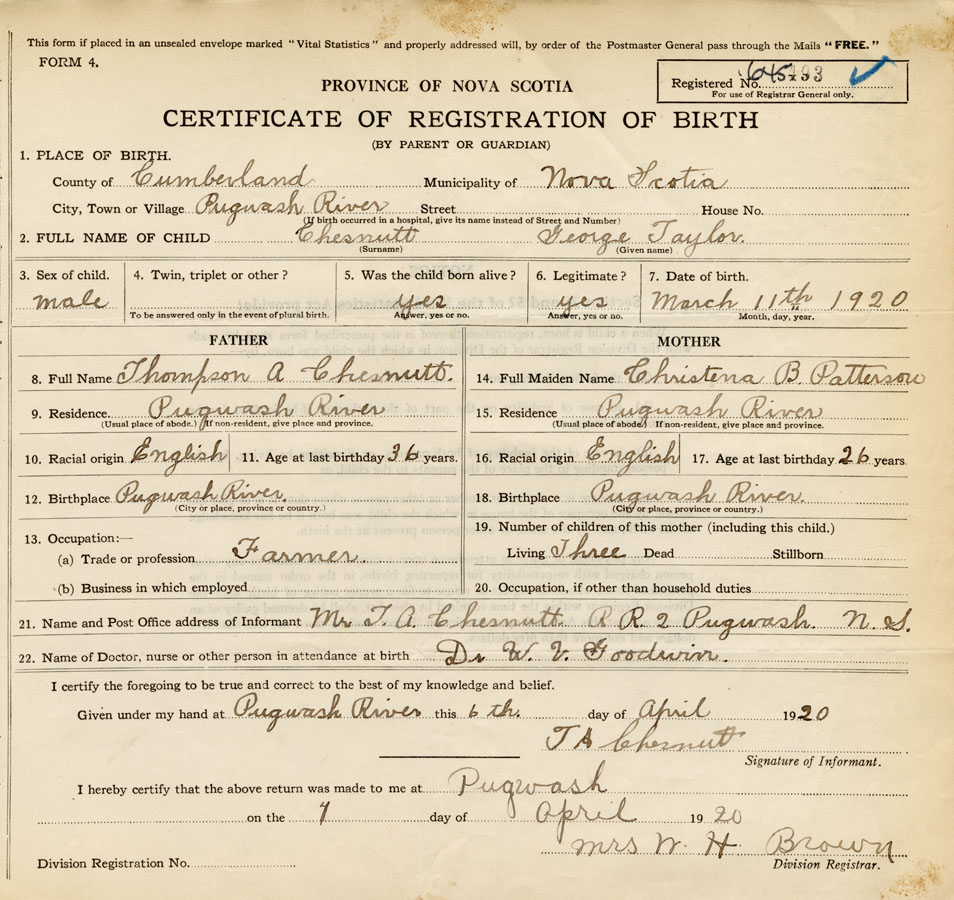 This form if placed in an unsealed envelope marked "Vital Statistics" and properly addressed will, by order of the Postmaster General pass through the Mails "FREE."
FORM 4.
Registered No.
For use of Registrar General only.
PROVINCE OF NOVA SCOTIA
CERTIFICATE OF REGISTRATION OF BIRTH
(BY PARENT OR GUARDIAN)
1. PLACE OF BIRTH.
County of Cumberland Municipality of Nova Scotia
City, Town or Village Pugwash River Street House No.
(If birth occurred in a hospital, give its name instead of Street and Number)
2. FULL NAME OF CHILD Chesnutt George Taylor.
(Surname) (Given name)
3. Sex of child. 4. Twin, triplet or other? 5. Was the child born alive? 6. Legitimate? 7. Date of birth.
male yes yes March 11th 1920
To be answered only in the event of plural birth. Answer, yes or no. Answer, yes or no. Month, day, year.
FATHER MOTHER
8. Full Name Thompson A Chesnutt. 14. Full Maiden Name Christena B. Patterson
9. Residence. Pugwash River 15. Residence Pugwash River
(Usual place of abode.) If non-resident, give place and province. (Usual place of abode) If non-resident, give place and province.
10. Racial origin English 11. Age at last birthday 36 years. 16. Racial origin English 17. Age at last birthday 26 years
12. Birthplace Pugwash River. 18. Birthplace Pugwash River.
(City or place, province or country.) (City or place, province or country.)
13. Occupation:— 19. Number of children of this mother (including this child.)
(a) Trade or profession Farmer. Living Three Dead Stillborn
(b) Business in which employed 20. Occupation, if other than household duties
21. Name and Post Office address of Informant Mr T. A. Chesnutt. R R. 2 Pugwash. N. S.
22. Name of Doctor, nurse or other person in attendance at birth Dr W. V. Goodwin.
I certify the foregoing to be true and correct to the best of my knowledge and belief.
Given under my hand at Pugwash River this 6th. day of April 1920
T A Chesnutt
Signature of Informant.
I hereby certify that the above return was made to me at Pugwash
on the 7 day of April 1920
Mrs W. H Brown
Division Registration No. Division Registrar.